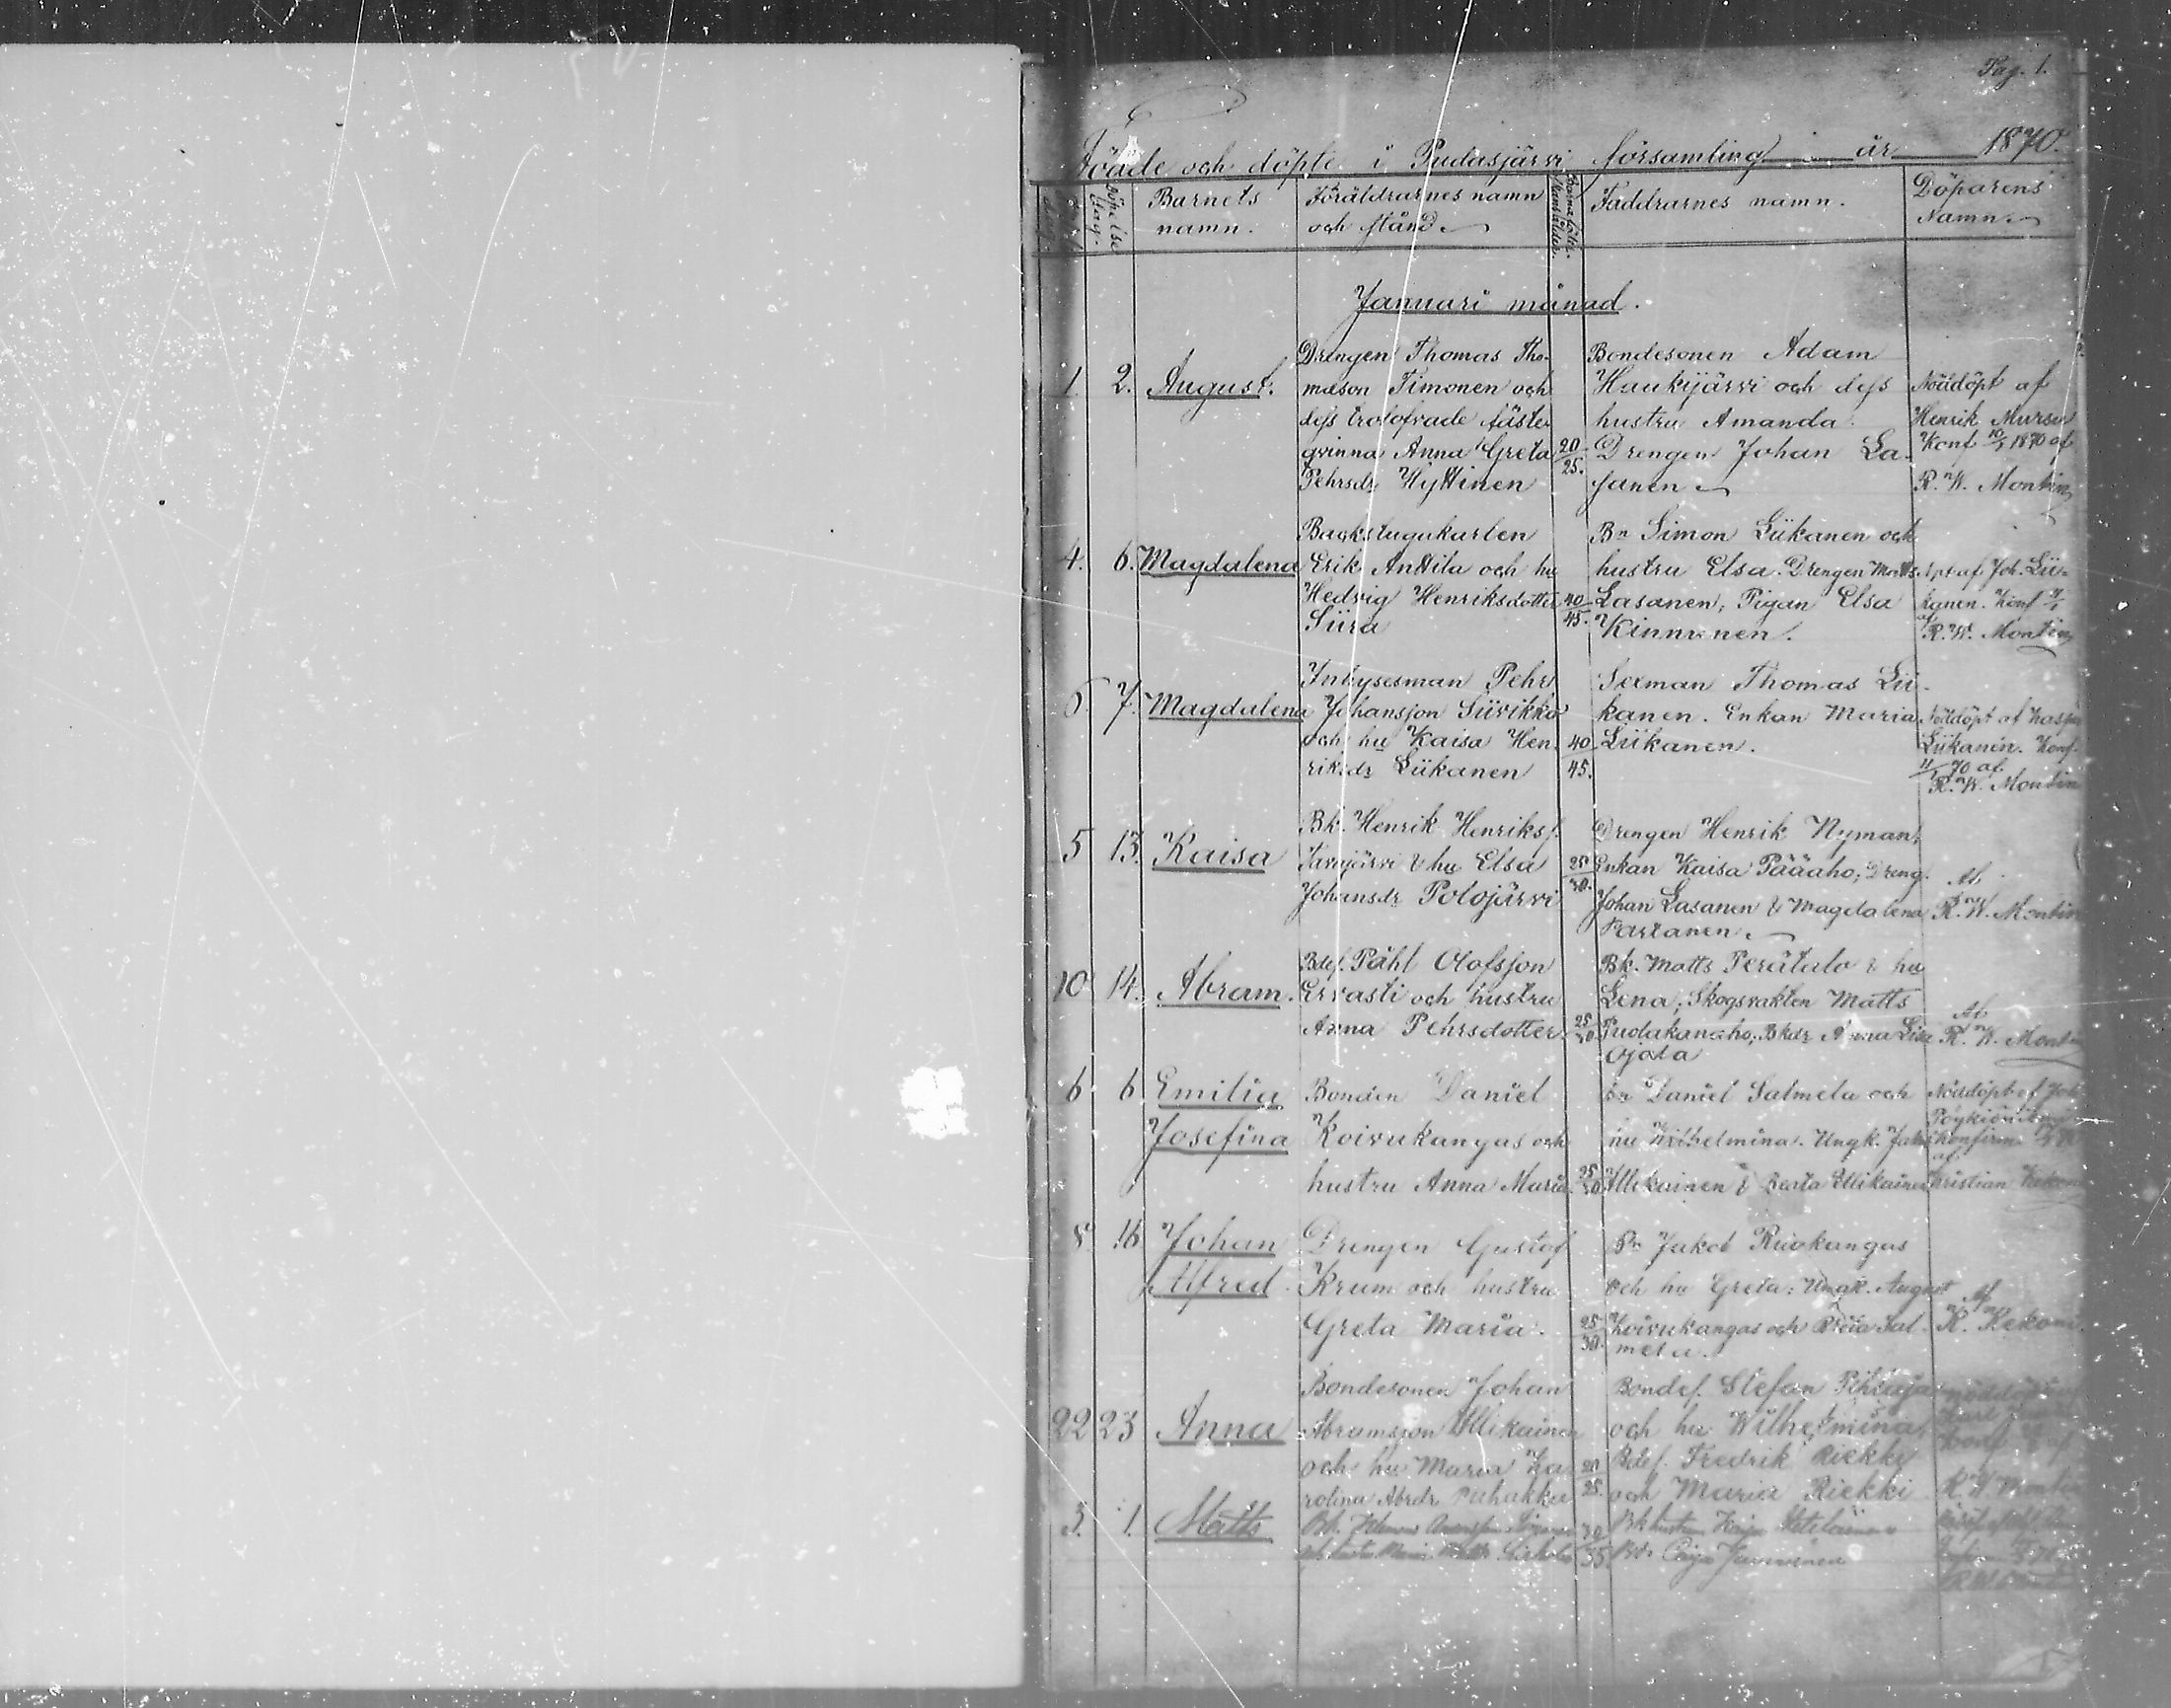 Pag. 1.
Födde och döpte i Pudasjärvi församling år 1870.
Döpelse dag. Barnets namn. Föräldrarnes namn och stånd. Faddrarnes namn. Döparens Namn.
Januari månad.
Drengen Thomas Tho- Bondesonen Adam
1. 2. August. masson Timonen och Haukijärvi och dess Nöddöpt af
dess trolofvade fäste- hustru Amanda. Henrik Mursu
qvinna Anna Greta 20 Drengen Johan La- Konf 10/1 1870 af
Pehrsdr Hyttinen 25. sanen R. W. Montin
Backstugukarlen Bn Simon Liikanen och
4. 6. Magdalena Erik Anttila och hu hustru Elsa. Drengen Matts af Joh. Lii-
Hedvig Henriksdotter 40 Lasanen, Pigan Elsa kanen. Konf
Siira 45. Kinnunen. af R. W. Montin
Inhysesman Pehr Sexman Thomas Lii-
6. 7. Magdalena Johansson Siivikko kanen. Enkan Maria Nöddöpt af Kaspar
och hu Kaisa Hen- 40 Liikanen. Liikanen. Konf.
riksdr Liikanen 45. 11/1 70 af
R. W. Montin
Bk. Henrik Henrikss. Drengen Henrik Nyman,
5 13. Kaisa & hu Elsa 25 Enkan Kaisa Pääaho, Dreng. Af
Johansdr Polojärvi 30. Johan Lasanen & Magdalena R. W. Montin
Partanen.
Bdes. Påhl Olofsson Bk. Matts Perätalo & hu
10 14. Abram. Ervasti och hustru Lena, Skogsvakten Matts Af
Anna Pehrsdotter 25 Puolakanaho, Bkdr Anna Lisa R. W. Montin
30. Ojala
6 6 Emilia Bonden Daniel Bn Daniel Salmela och Nöddöpt af Joh
Josefina Koivukangas och hu Wilhelmina. Ungk.
af
hustru Anna Maria. 25 Illikainen & Beata Illikainen Christian
30
8 16 Johan Drengen Gustaf Bn Jakob Ruokangas
Alfred Krum och hustru och hu Greta; Ungk. August Af
Greta Maria. 25 Koivukangas och Sal- K. Kekoni
30. mela.
Bondesonen Johan Bondes. Stefan
22 23 Anna Abramsson Illikainen och hu Wilhelmina,
och hu Maria Ka- 20 Bdes. Fredrik Riekki
rolina Abrdr Puhakka 25. och Maria Riekki R. W. Montin
3. 1. Matts Bk. 30 Bk hustru Kaisa
och hustru Maria 35